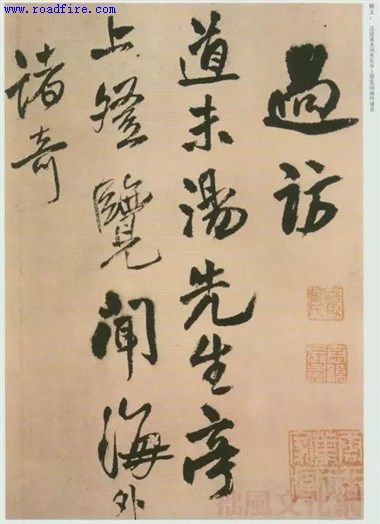 www.roadfire.com
過訪
道未湯先生亭
上登覽聞海外
諸奇